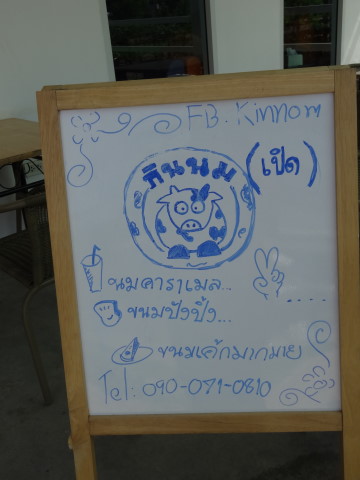 FB. Kinnom
กินนม
(เปิด)
นมคาราเมล...
ขนมปังปิ้ง...
ขนมเค้กมากมาย
Tel: 090-071-0810